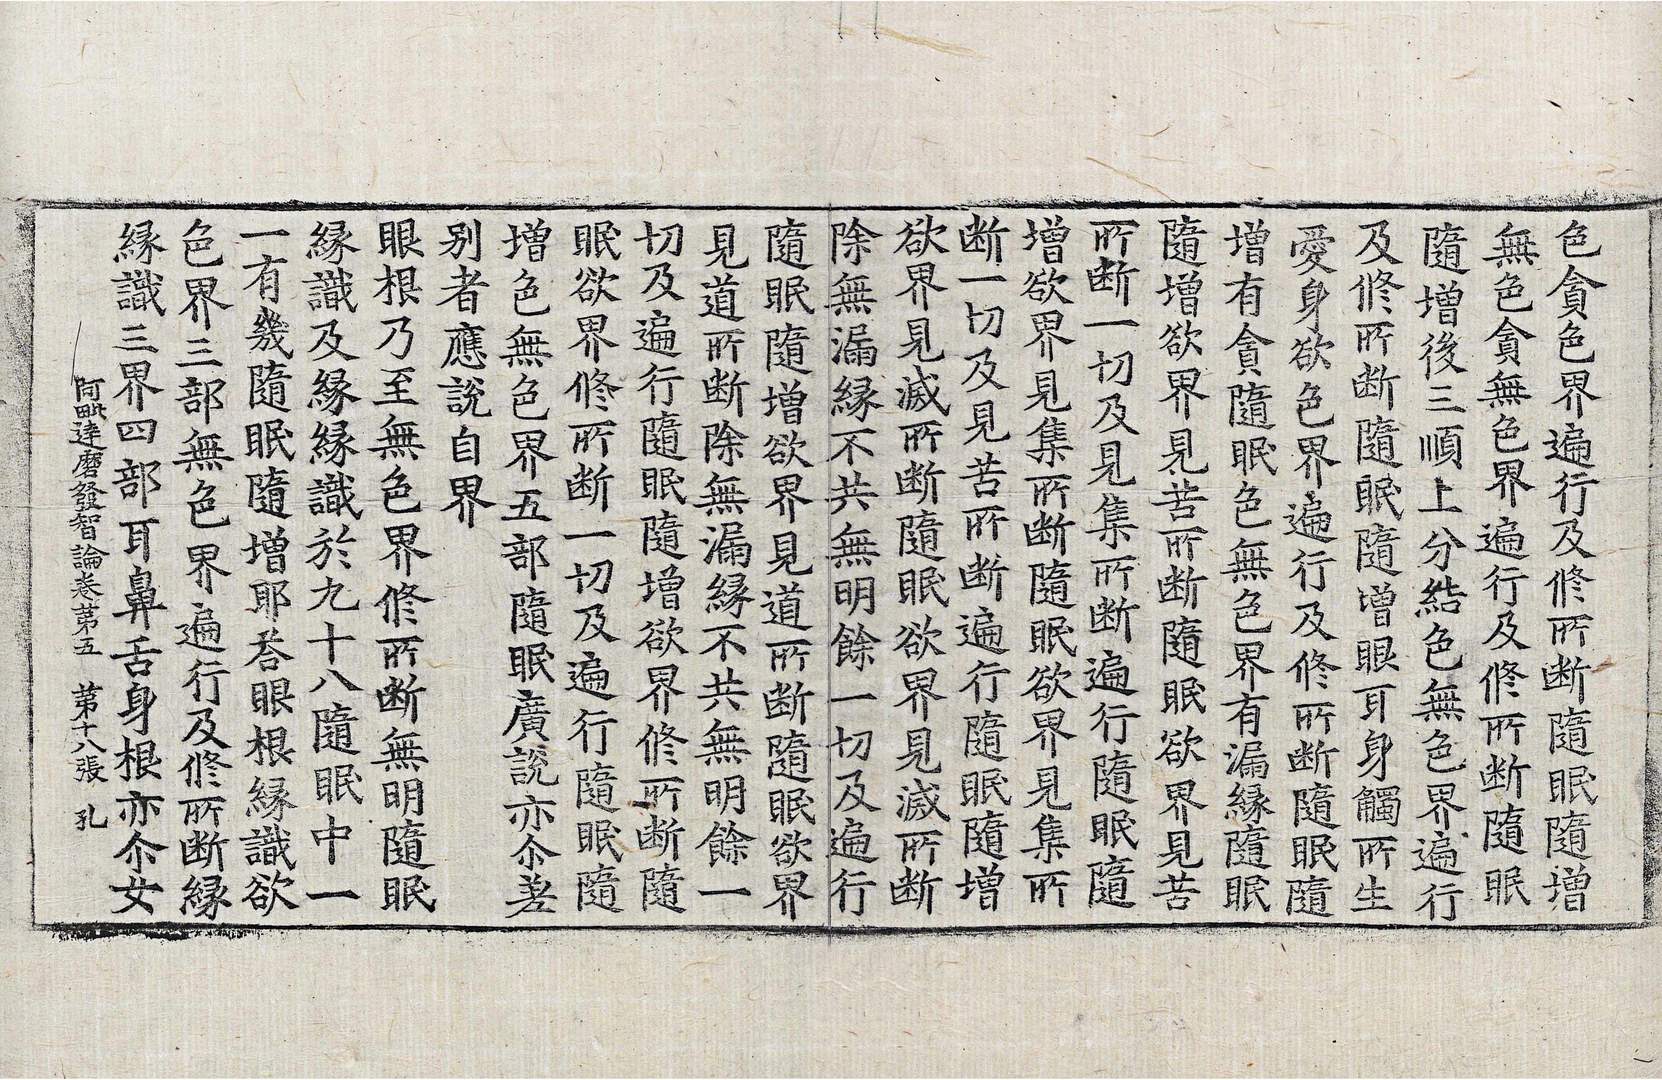 色貪色界遍行及修所断隨眠隨增
無色貪無色界遍行及修所断隨眠
隨增後三順上分結色無色界遍行
及修所断隨眠隨增眼耳身觸所生
愛身欲色界遍行及修所断隨眠隨
增有貪隨眠色無色界有漏縁隨眠
隨增欲界見苦所断隨眠欲界見苦
所断一切及見集所断遍行隨眠隨
增欲界見集所断隨眠欲界見集所
断一切及見苦所断遍行隨眠隨增
欲界見滅所断隨眠欲界見滅所断
除無漏縁不共無明餘一切及遍行
隨眠隨增欲界見道所断隨眠欲界
見道所断除無漏縁不共無明餘一
切及遍行隨眠隨增欲界修所断隨
眠欲界修所断一切及遍行隨眠隨
增色無色界五部隨眠廣說亦尒差
别者應說自界
眼根乃至無色界修所断無明隨眠
縁識及縁縁識於九十八隨眠中一
一有幾隨眠隨增耶荅眼根縁識欲
色界三部無色界遍行及修所断縁
縁識三界四部耳鼻舌身根亦尒女
阿毗達磨發智論卷苐五　苐十八張　孔